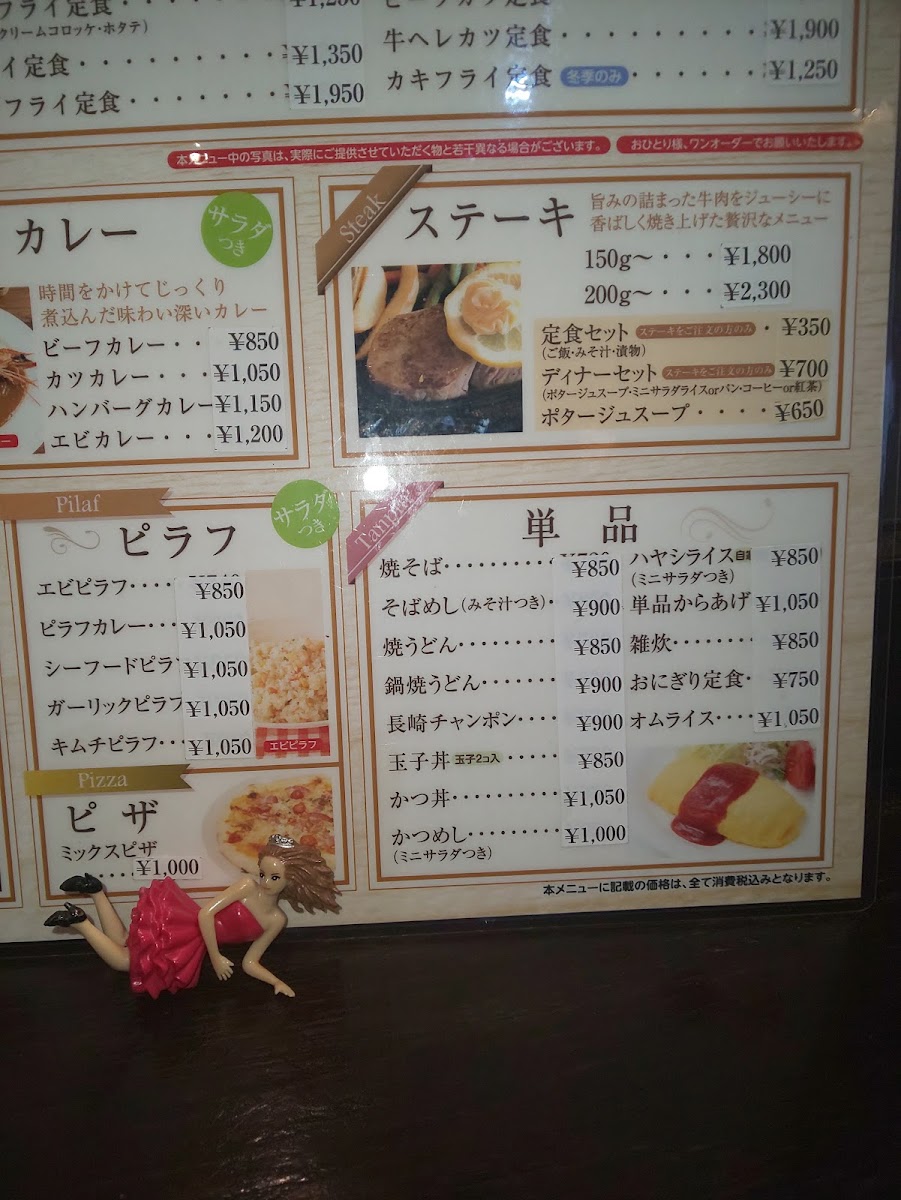 フライ定食・・・・・・・¥1,250
クリームコロッケ・ホタテ)
イ定食・・・・・・・・・¥1,350
フライ定食・・・・・・・¥1,950
牛ヘレカツ定食・・・・・・・・¥1,900
カキフライ定食 冬季のみ・・・・・・¥1,250
本メニュー中の写真は、実際にご提供させていただく物と若干異なる場合がございます。
おひとり様、ワンオーダーでお願いいたします。
カレー
サラダ
つき
時間をかけてじっくり
煮込んだ味わい深いカレー
ビーフカレー・・¥850
カツカレー・・・¥1,050
ハンバーグカレー¥1,150
エビカレー・・・¥1,200
Steak
ステーキ
旨みの詰まった牛肉をジューシーに
香ばしく焼き上げた贅沢なメニュー
150g〜・・・¥1,800
200g〜・・・¥2,300
定食セット ステーキをご注文の方のみ・¥350
(ご飯・みそ汁・漬物)
ディナーセット ステーキをご注文の方のみ ¥700
(ポタージュスープ・ミニサラダライスorパン・コーヒーor紅茶)
ポタージュスープ・・・・¥650
Pilaf
ピラフ
サラダ
つき
エビピラフ・・・・¥850
ピラフカレー・・・¥1,050
シーフードピラ ¥1,050
ガーリックピラフ ¥1,050
キムチピラフ・・・¥1,050
エビピラフ
Pizza
ピザ
ミックスピザ
・・・・¥1,000
単品
焼そば・・・・・・・・・¥850
そばめし(みそ汁つき)・¥900
焼うどん・・・・・・・・¥850
鍋焼うどん・・・・・・・¥900
長崎チャンポン・・・・¥900
玉子丼 玉子2コ入・・・・・¥850
かつ丼・・・・・・・・・¥1,050
かつめし・・・・・・・・¥1,000
(ミニサラダつき)
ハヤシライス ¥850
(ミニサラダつき)
単品からあげ ¥1,050
雑炊・・・・・・・¥850
おにぎり定食・¥750
オムライス・・・・¥1,050
本メニューに記載の価格は、全て消費税込みとなります。